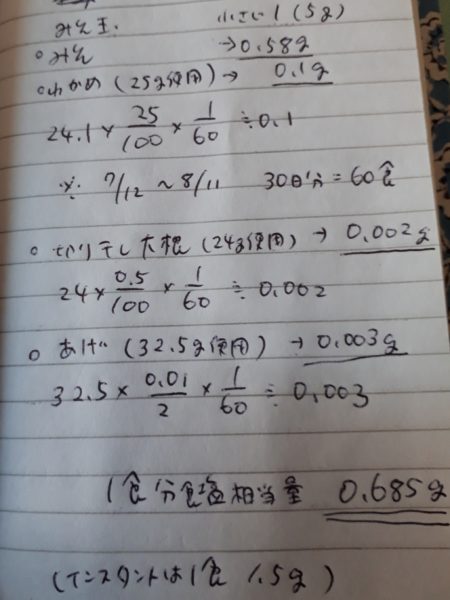 みそ玉. 小さい1(5g)
○みそ →0.58g
○わかめ(25g使用)→ 0.1g
24.1×25/100×1/60≒0.1
※ 7/12~8/11 30日分=60食
○切り干し大根(24g使用)→ 0.002g
24×0.5/100×1/60≒0.002
○あげ(32.5g使用)→0.003g
32.5×0.01/2×1/60≒0.003
1食分食塩相当量 0.685g
(インスタントは1食 1.5g)